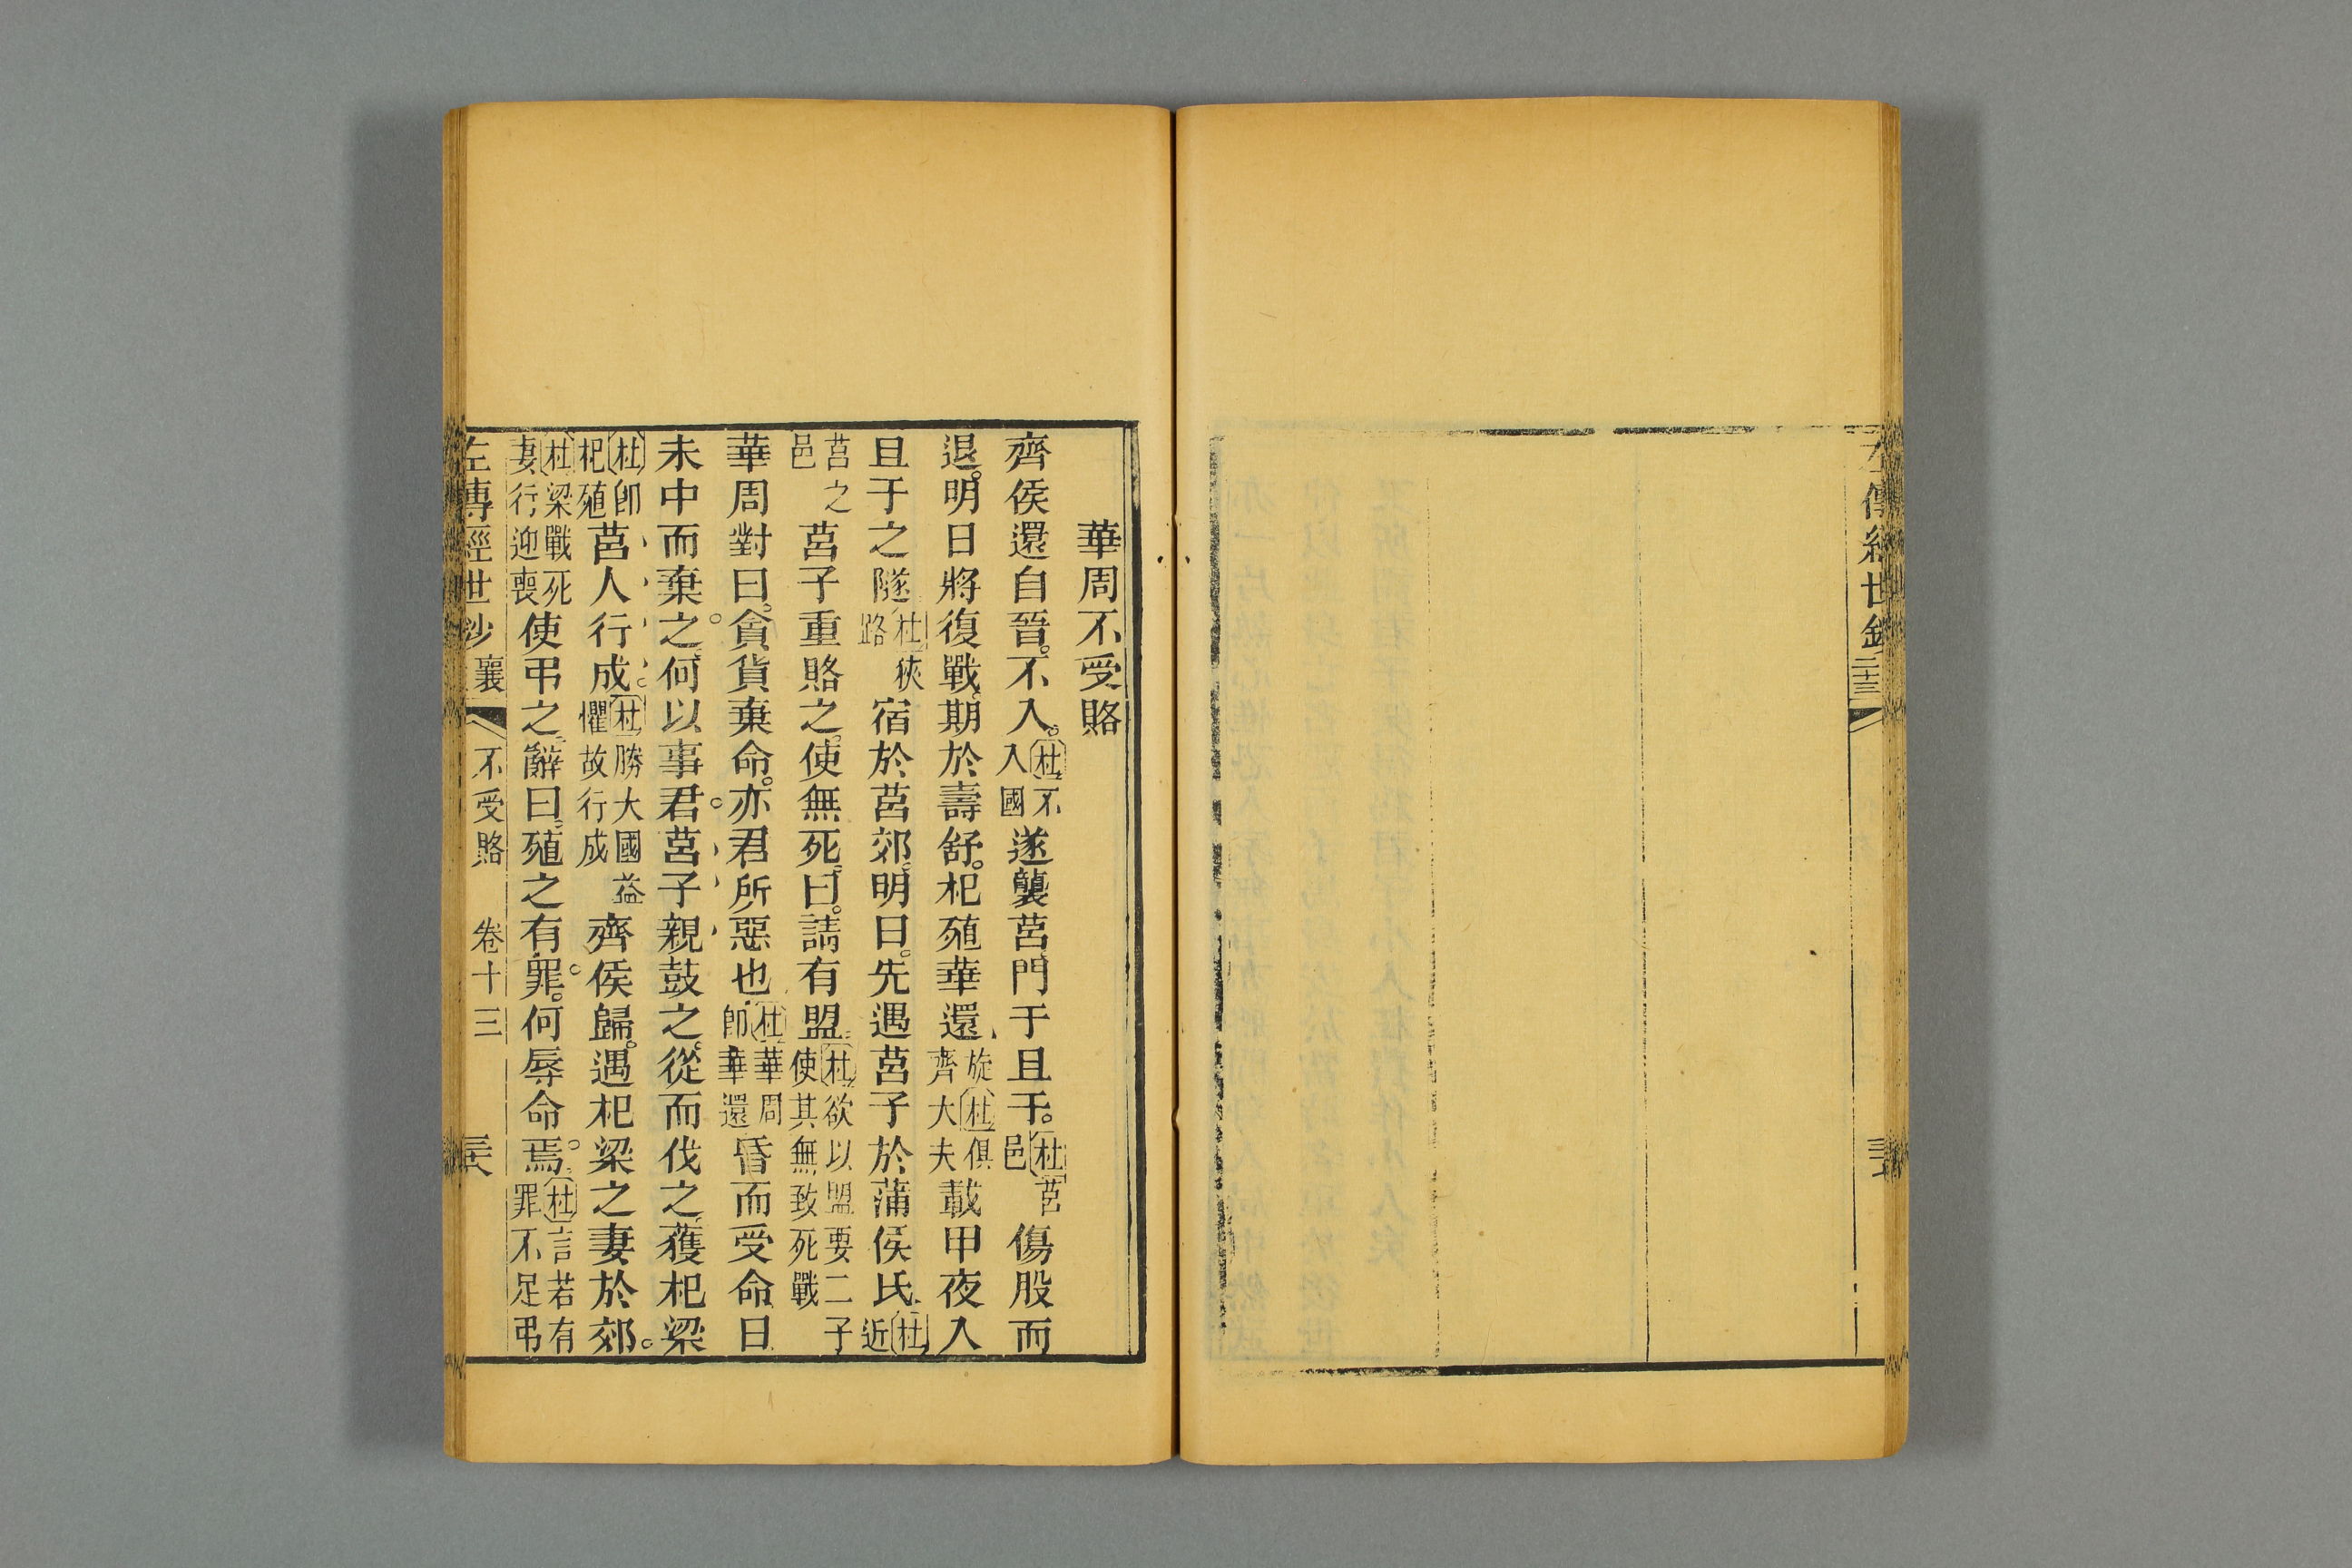 左傳經世鈔 二十三
華周不受賂
齊侯還自晉。不入。杜不入國遂襲莒門于且于。杜莒邑傷股而
退。明日將復戰。期於壽舒。杞殖華還旋杜俱齊大夫載甲夜入
且于之隧杜狹路宿於莒郊。明日。先遇莒子於蒲侯氏杜近
莒之邑莒子重賂之。使無死。曰。請有盟杜欲以盟要二子使其無致死戰
華周對曰。貪貨棄命。亦君所惡也杜華周即華還昏而受命日
未中而棄之。何以事君。莒子親鼓之。從而伐之獲杞梁
杜即杞殖莒人行成。杜勝大國益懼故行成齊侯歸。遇杞梁之妻於郊。
杜梁戰死妻行迎喪使弔之。辭曰。殖之有罪。何辱命焉。杜言若有罪不足弔
左傳經世鈔 襄 不受賂 卷十三